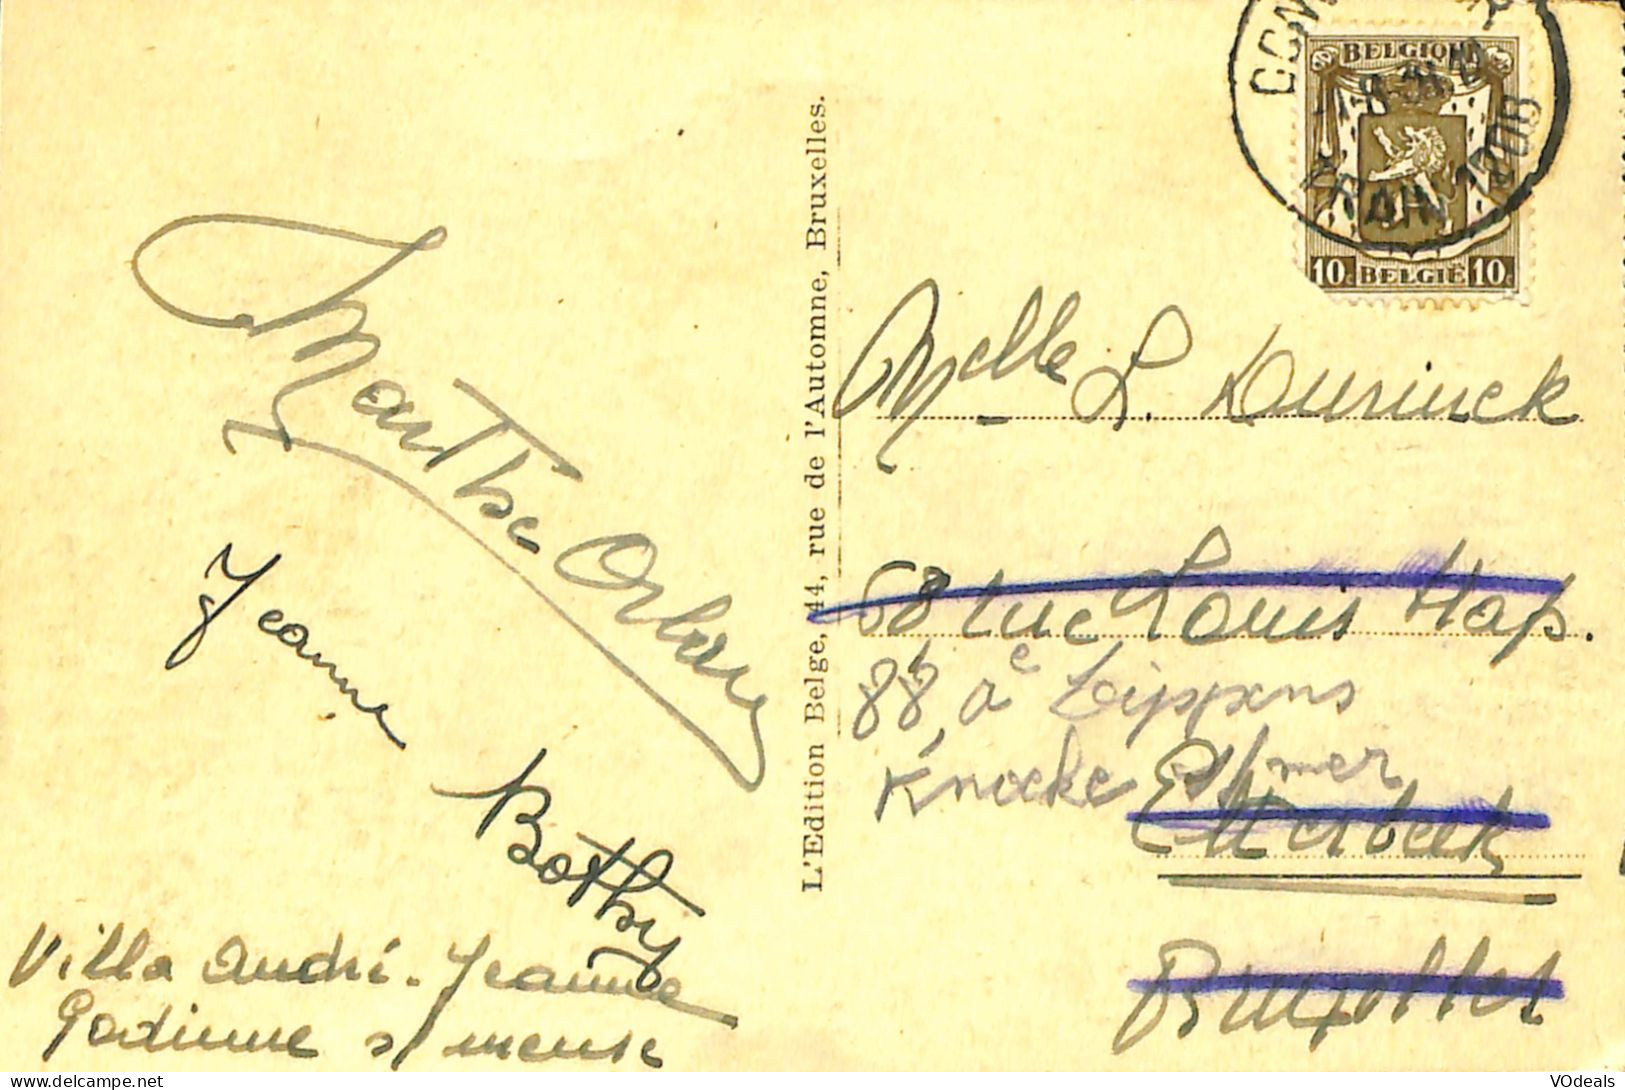 Marthe Orban
Jeanne Bothy
Villa André-Jeanne
Godinne s/ meuse
L'Edition Belge, 44, rue de l'Automne, Bruxelles.
BELGIQUE
TRAIN 1208
10c BELGIË 10c
Melle L. Durinck
68, rue Louis Hap.
88, ae Lippens
Knocke s/mer
Etterbeek
Bruxelles
VOdeals